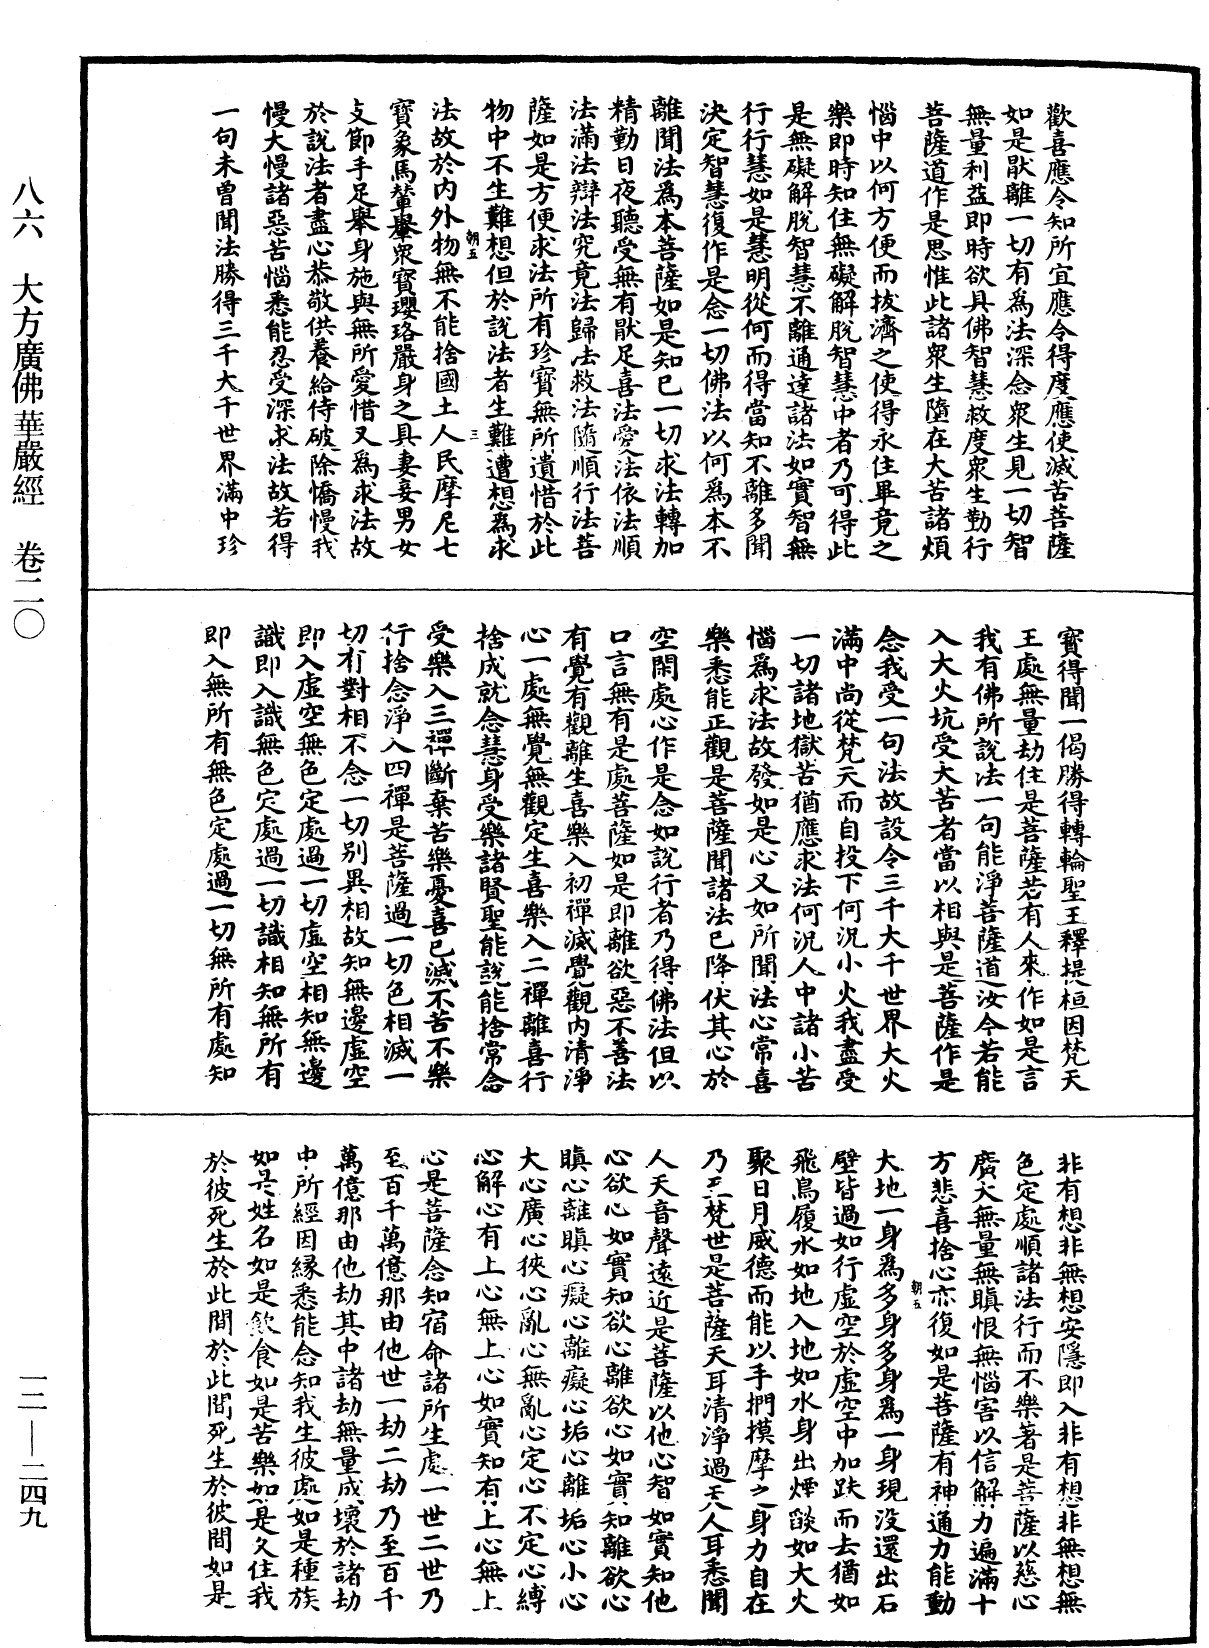 歡喜應令知所宜應令得度應使滅苦菩薩
如是猒離一切有為法深念眾生見一切智
無量利益即時欲具佛智慧救度眾生勤行
菩薩道作是思惟此諸眾生墮在大苦諸煩
惱中以何方便而拔濟之使得永住畢竟之
樂即時知住無礙解脫智慧中者乃可得此
是無礙解脫智慧不離通達諸法如實智無
行行慧如是慧明從何而得當知不離多聞
決定智慧復作是念一切佛法以何為本不
離聞法為本菩薩如是知已一切求法轉加
精勤日夜聽受無有猒足喜法愛法依法順
法滿法辯法究竟法歸法救法隨順行法菩
薩如是方便求法所有珍寶無所遺惜於此
物中不生難想但於說法者生難遭想為求
法故於內外物無不能捨國土人民摩尼七
寶象馬輦轝眾寶瓔珞嚴身之具妻妾男女
支節手足舉身施與無所愛惜又為求法故
於說法者盡心恭敬供養給侍破除憍慢我
慢大慢諸惡苦惱悉能忍受深求法故若得
一句未曾聞法勝得三千大千世界滿中珍
寶得聞一偈勝得轉輪聖王釋提桓因梵天
王處無量劫住是菩薩若有人來作如是言
我有佛所說法一句能淨菩薩道汝今若能
入大火坑受大苦者當以相與是菩薩作是
念我受一句法故設令三千大千世界大火
滿中尚從梵天而自投下何況小火我盡受
一切諸地獄苦猶應求法何況人中諸小苦
惱為求法故發如是心又如所聞法心常喜
樂悉能正觀是菩薩聞諸法已降伏其心於
空閑處心作是念如說行者乃得佛法但以
口言無有是處菩薩如是即離欲惡不善法
有覺有觀離生喜樂入初禪滅覺觀內清淨
心一處無覺無觀定生喜樂入二禪離喜行
捨成就念慧身受樂諸賢聖能說能捨常念
受樂入三禪斷棄苦樂憂喜已滅不苦不樂
行捨念淨入四禪是菩薩過一切色相滅一
切有對相不念一切別異相故知無邊虛空
即入虛空無色定處過一切虛空相知無邊
識即入識無色定處過一切識相知無所有
即入無所有無色定處過一切無所有處知
非有想非無想安隱即入非有想非無想無
色定處順諸法行而不樂著是菩薩以慈心
廣大無量無瞋恨無惱害以信解力遍滿十
方悲喜捨心亦復如是菩薩有神通力能動
大地一身為多身多身為一身現沒還出石
壁皆過如行虛空於虛空中加趺而去猶如
飛鳥履水如地入地如水身出煙燄如大火
聚日月威德而能以手捫摸摩之身力自在
乃至梵世是菩薩天耳清淨過天人耳悉聞
人天音聲遠近是菩薩以他心智如實知他
心欲心如實知欲心離欲心如實知離欲心
瞋心離瞋心癡心離癡心垢心離垢心小心
大心廣心狹心亂心無亂心定心不定心縛
心解心有上心無上心如實知有上心無上
心是菩薩念知宿命諸所生處一世二世乃
至百千萬億那由他世一劫二劫乃至百千
萬億那由他劫其中諸劫無量成壞於諸劫
中所經因緣悉能念知我生彼處如是種族
如是姓名如是飲食如是苦樂如是久住我
於彼死生於此間於此間死生於彼間如是
朝五
三
朝五
八六 大方廣佛華嚴經 卷二〇
一二—二四九